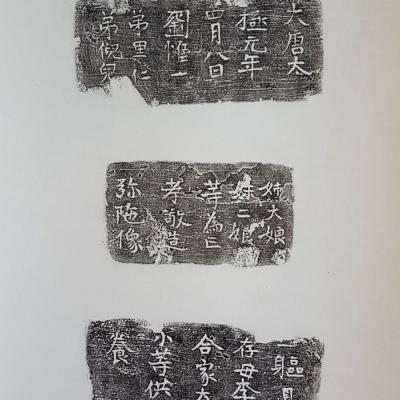 大唐太
極元年
四月八日
劉惟一
弟里仁
弟倪兒
姊大娘
妹二娘
等為亡
考敬造
弥陁像
一軀見
存母李
合家大
小等供
養